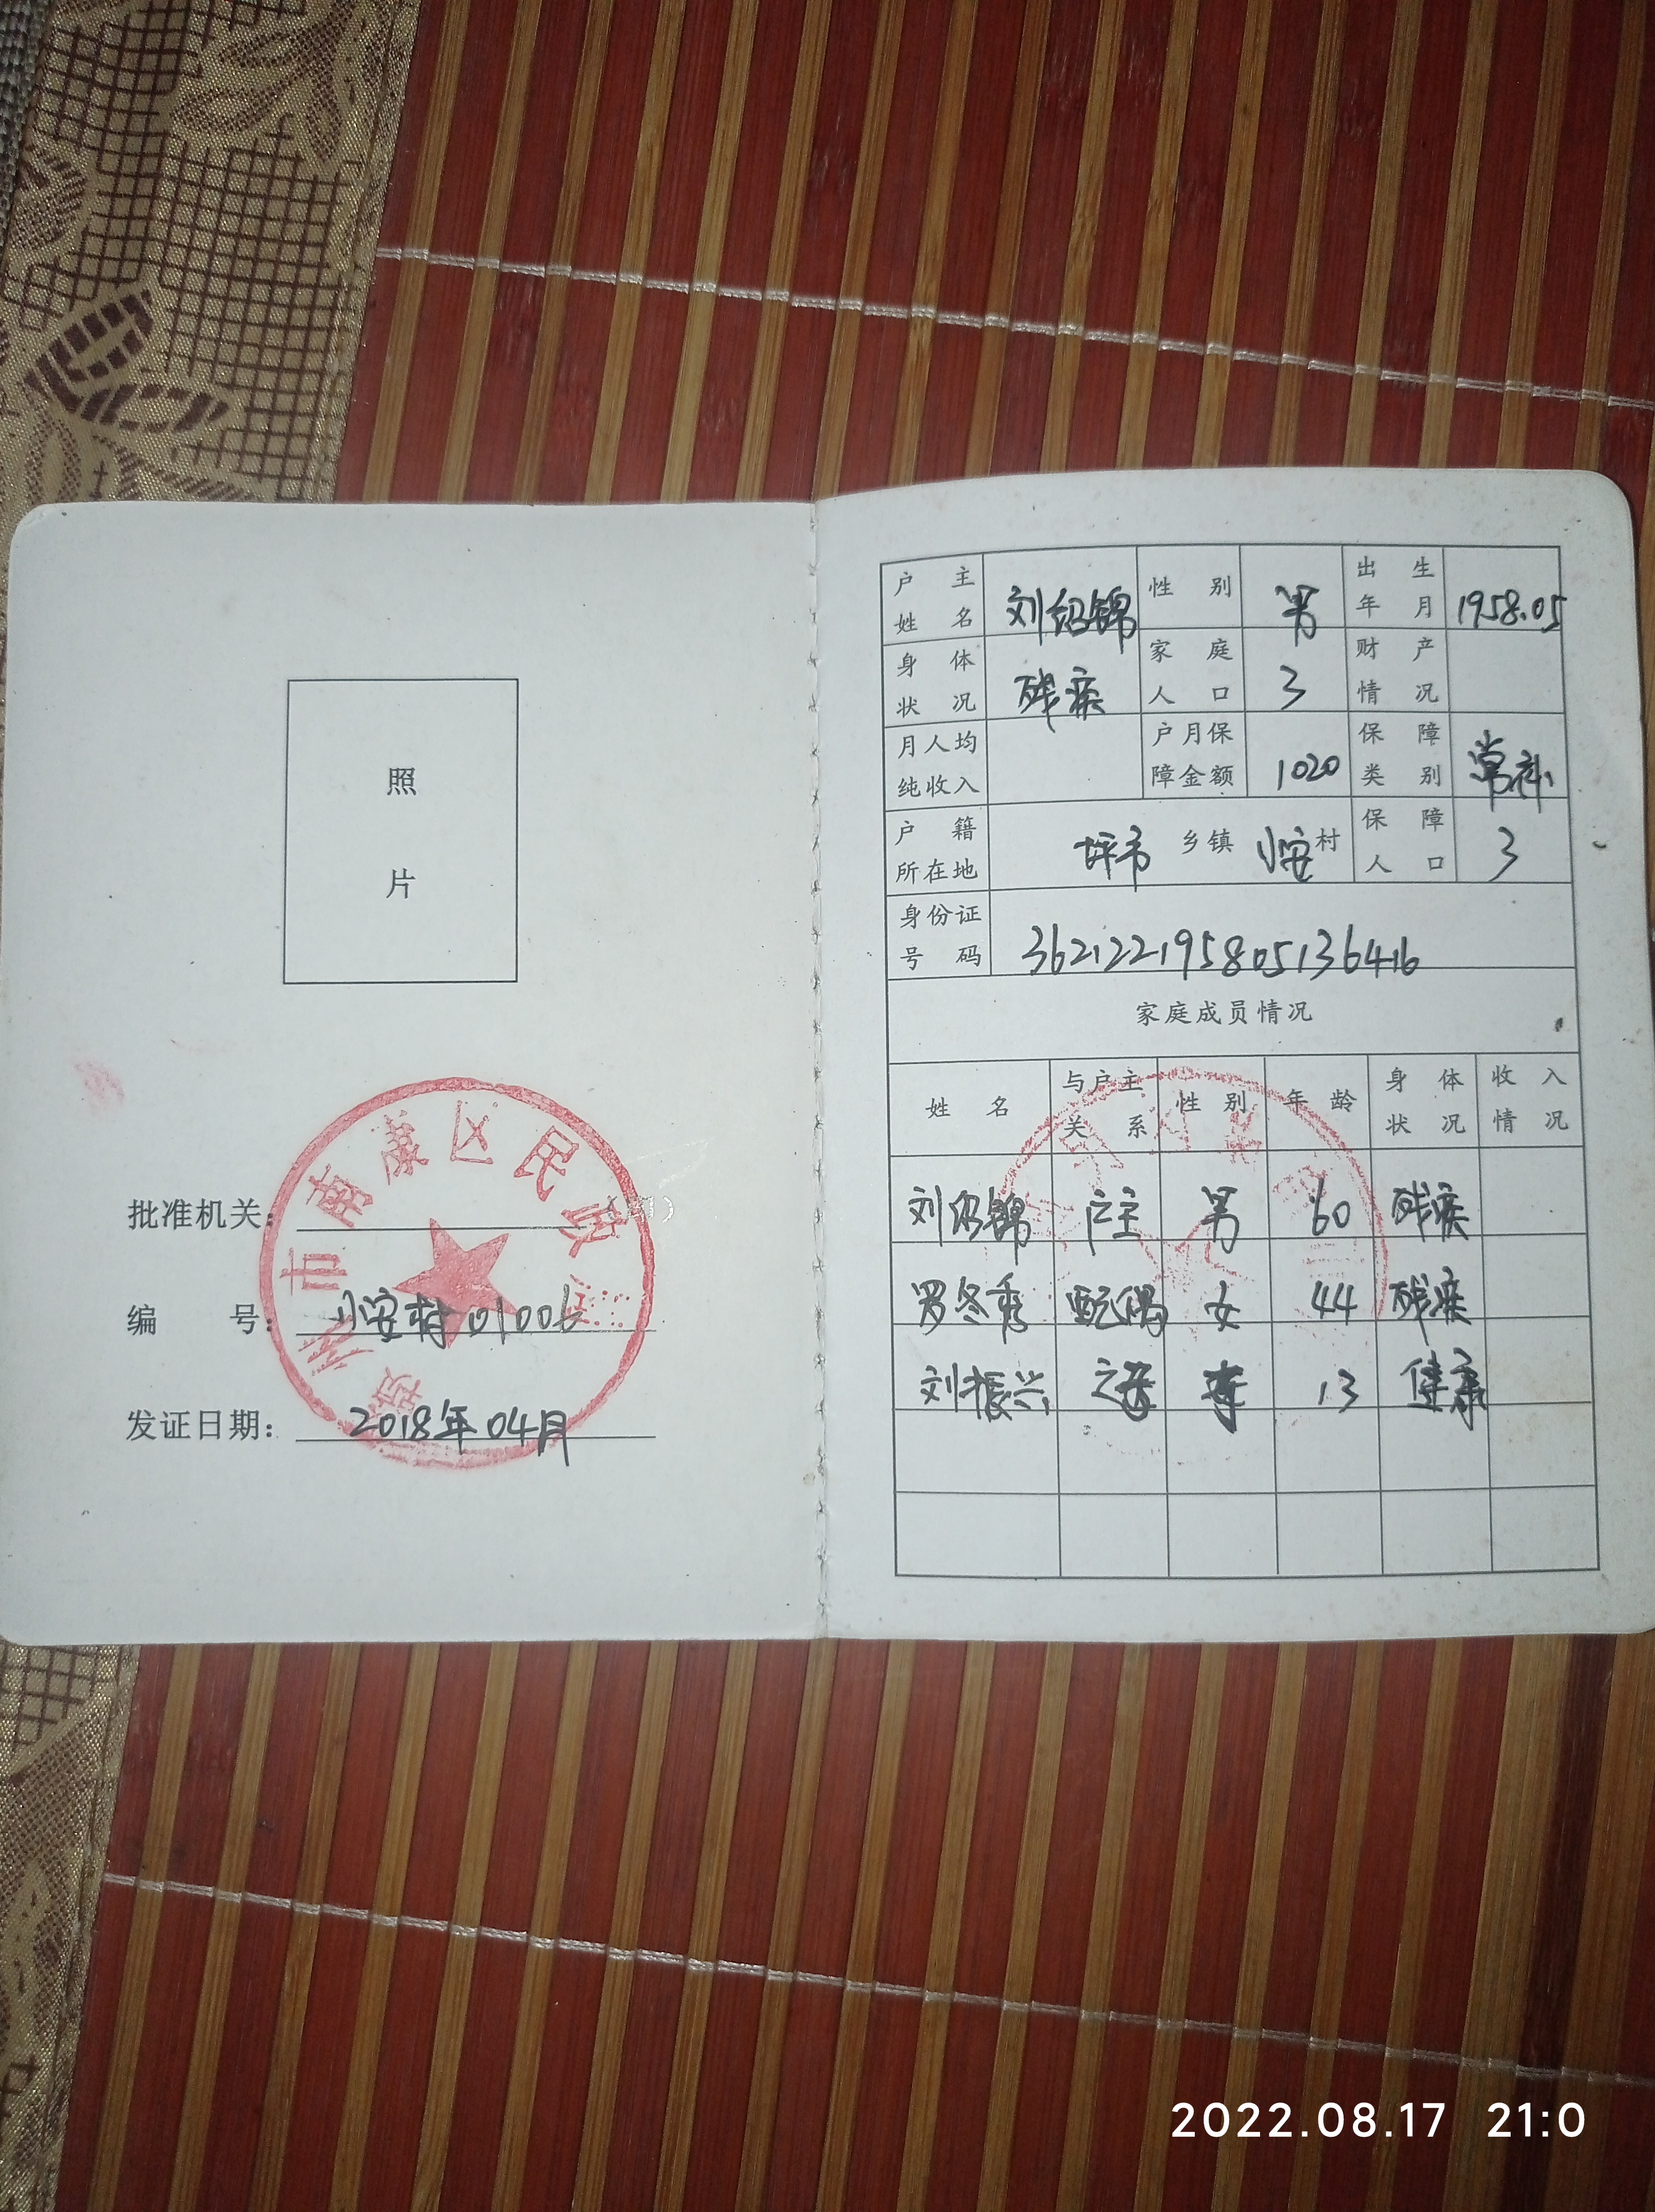 照
片
批准机关：
编 号：小安村01006
发证日期：2018年04月
南康区民政
市
户主姓名 刘绍锦 性别 男 出生年月 1958.05
身体状况 残疾 家庭人口 3 财产情况
月人均纯收入 户月保障金额 1020 保障类别 常补
户籍所在地 坪市 乡镇 小安 村 保障人口 3
身份证号码 362122195805136416
家庭成员情况
姓名 与户主关系 性别 年龄 身体状况 收入情况
刘绍锦 户主 男 60 残疾
罗冬秀 配偶 女 44 残疾
刘振兴 之 13 健康
2022.08.17 21:0